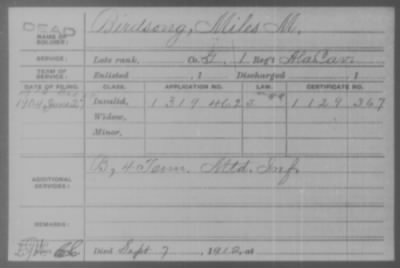 DEAD
NAME OF SOLDIER: Birdsong, Miles M.
SERVICE: Late rank, Co. G, 1 Reg't Ala Cav
TERM OF SERVICE: Enlisted , 1 Discharged , 1
DATE OF FILING. CLASS. APPLICATION NO. LAW. CERTIFICATE NO.
1904, June 2 Invalid, 1319462 1129367
Widow,
Minor,
ADDITIONAL SERVICES: B, 4 Tenn. Mtd. Inf.
REMARKS:
Died Sept 7, 1912, at